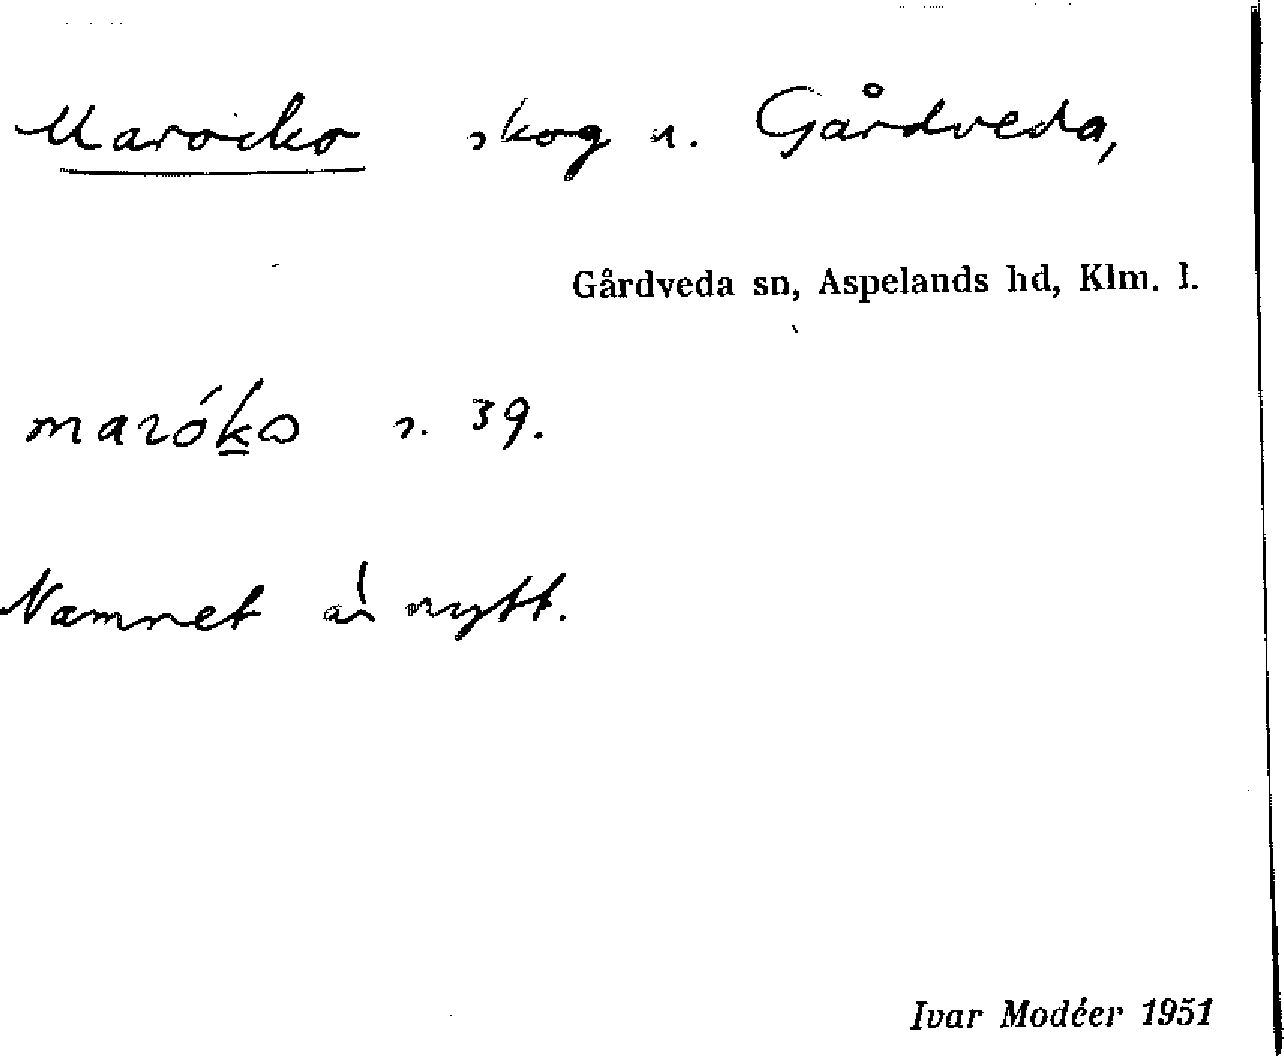 Marocko skog u. Gårdveda,
Gårdveda sn, Aspelands hd, Klm. l.
maróko s. 39.
Namnet är nytt.
Ivar Modéer 1951